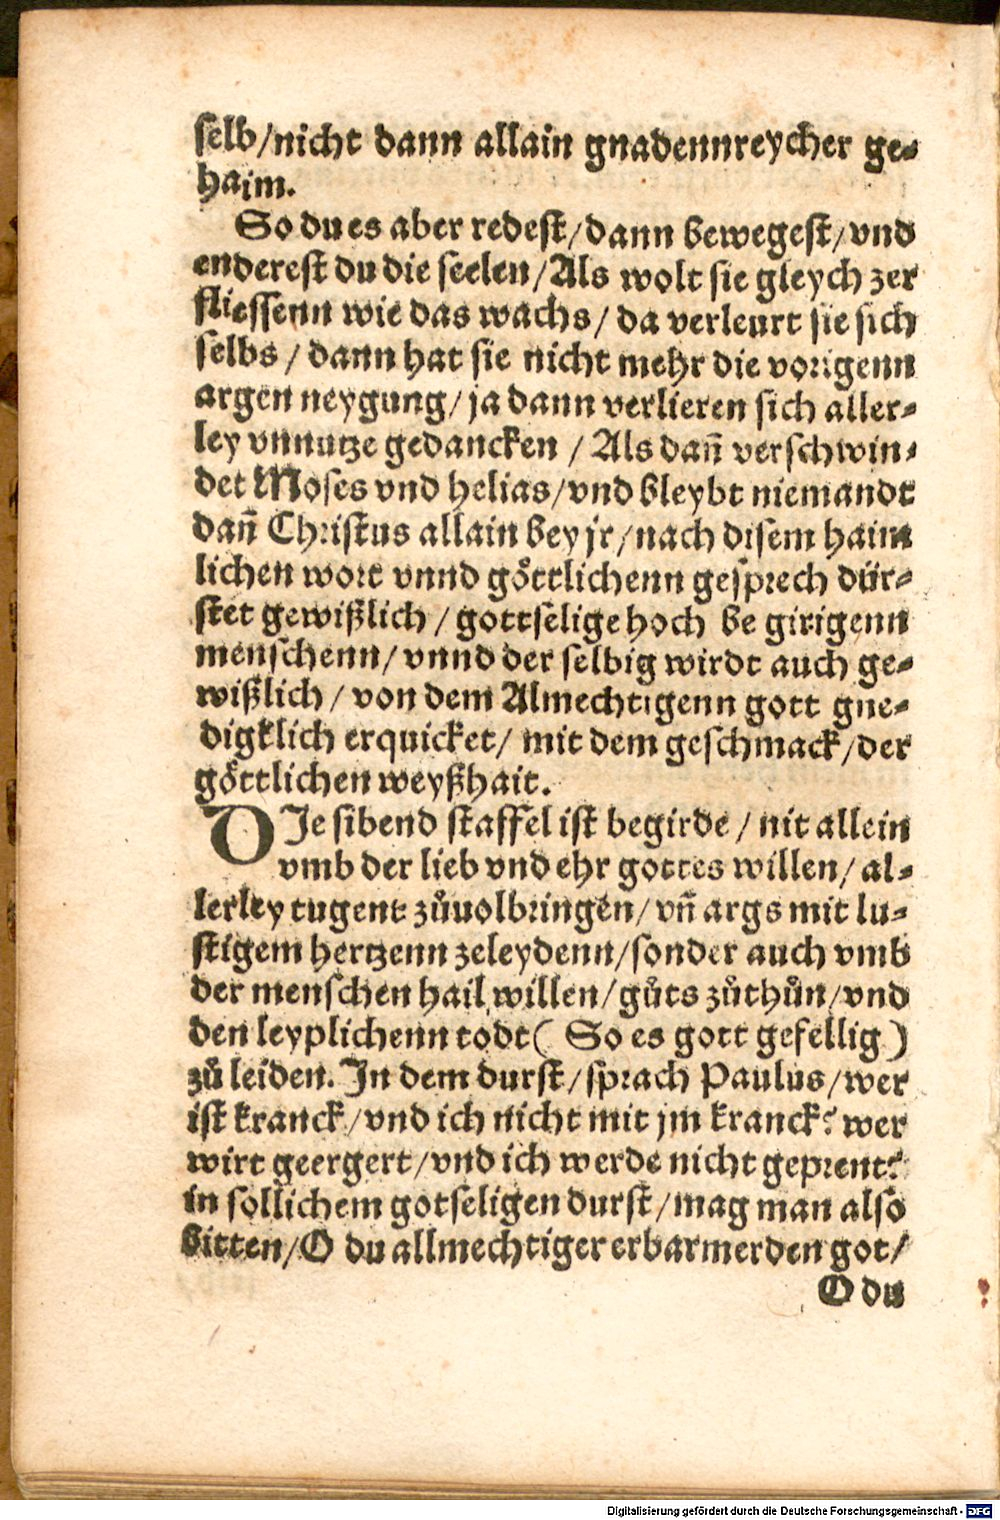 selb/nicht dann allain gnadennreycher ge-
haim.
So du es aber redest/dann bewegest/vnd
enderest du die seelen/Als wolt sie gleych zer
fliessenn wie das wachs/da verleurt sie sich
selbs/dann hat sie nicht mehr die vorigenn
argen neygung/ja dann verlieren sich aller-
ley vnnutze gedancken/Als dañ verschwin-
det Moses vnd helias/vnd bleybt niemandt
dañ Christus allain bey jr/nach disem haim
lichen wort vnnd göttlichenn gesprech dür-
stet gewißlich/gottselige hoch be girigenn
menschenn/vnnd der selbig wirdt auch ge-
wißlich/von dem Almechtigenn gott gne-
digklich erquicket/mit dem geschmack/der
göttlichen weyßhait.
DJe sibend staffel ist begirde/nit allein
vmb der lieb vnd ehr gottes willen/al-
lerley tugent zůuolbringen/vñ args mit lu-
stigem hertzenn zeleydenn/sonder auch vmb
der menschen hail willen/gůts zůthůn/vnd
den leyplichenn todt( So es gott gefellig)
zů leiden. Jn dem durst/sprach Paulus/wer
ist kranck/vnd ich nicht mit jm kranck? wer
wirt geergert/vnd ich werde nicht geprent?
in sollichem gotseligen durst/mag man also
bitten/O du allmechtiger erbarmerden got/
O du
Digitalisierung gefördert durch die Deutsche Forschungsgemeinschaft - DFG